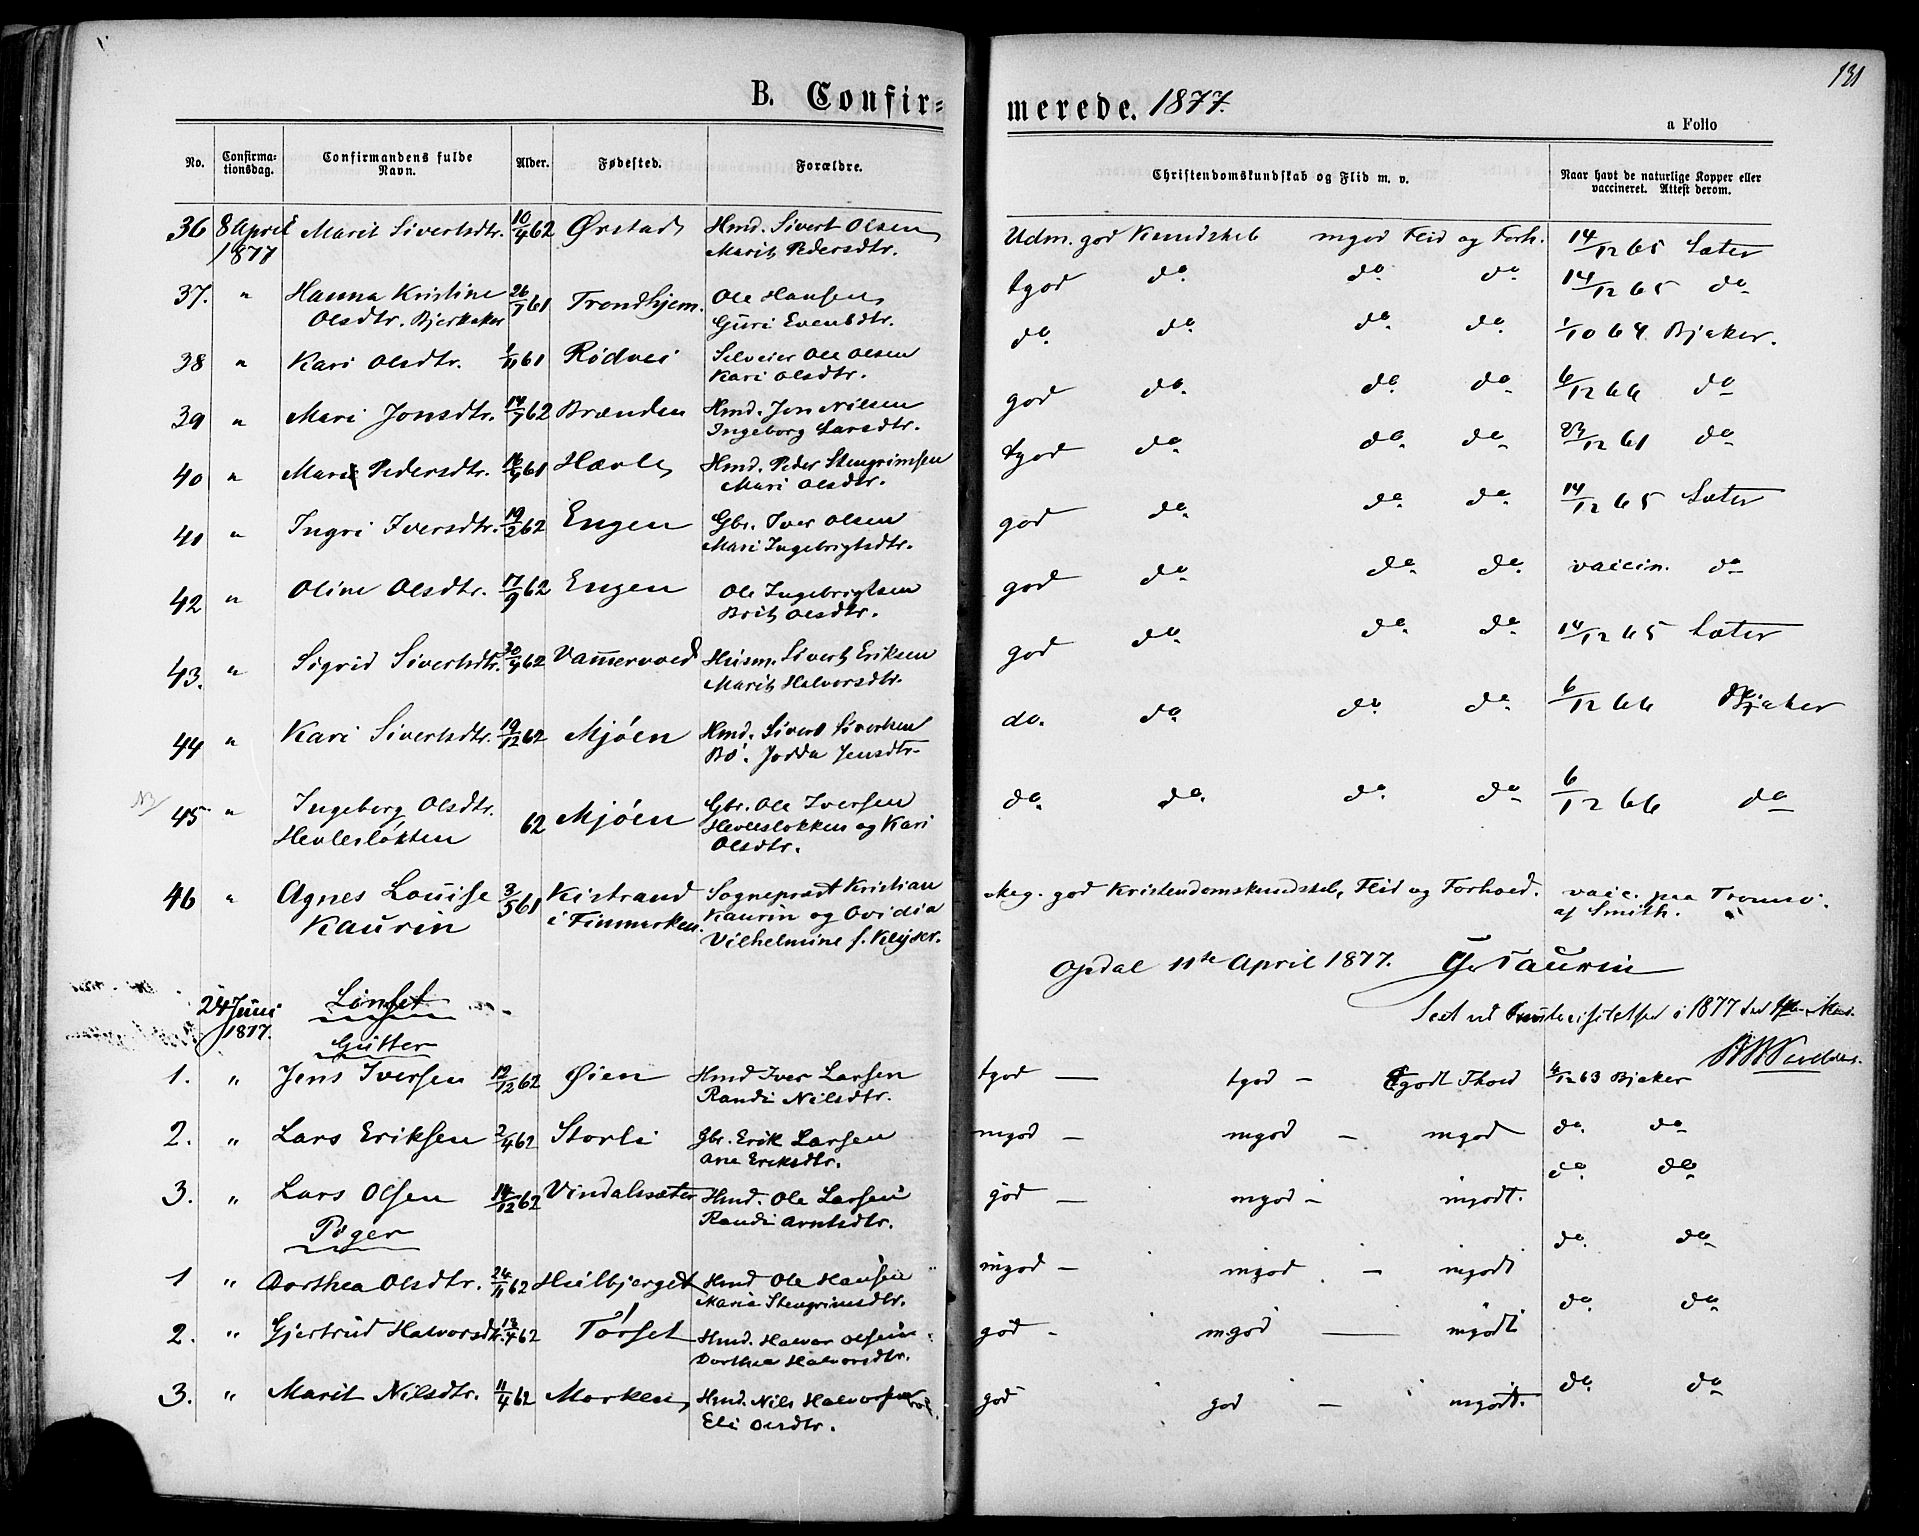 131
B. Confir=
merede. 1877.
a Folio
No. Confirma-tionsdag. Confirmandens fulde Navn. Alder. Fødested. Forældre. Christendomskundskab og Flid m. v. Naar havt de naturlige Kopper eller vaccineret. Attest derom.
36 8 April 1877 Marit Sivertsdtr. 10/4 62 Ørstad Hmd. Sivert Olsen Marit Pedersdtr. Udm. god Kundskab mgod Flid og Forh. 14/12 65 Sæter
37. " Hanna Kristine Olsdtr. Bjerkaker 26/7 61 Trondhjem. Ole Hansen Guri Evensdtr. tgod do. do. do. 14/12 65 do
38 " Kari Olsdtr. 1/11 61 Rødvei Selveier Ole Olsen Kari Olsdtr. do. do. do. do. 1/10 64 Bjeker.
39 " Mari Jonsdtr. 14/7 62 Brænden Hmd. Jon Nilsen Ingeborg Larsdtr. god do. do. do. 6/12 66 do
40 " Mari Pedersdtr. 16/9 61 Hævle Hmd. Peder Stengrimsen Mari Olsdtr. tgod do. do. do. 23/12 61 do
41 " Ingri Iversdtr. 19/2 62 Engen Gbr. Iver Olsen Mari Ingebrigtsdtr. god do. do. do. 14/12 65 Sæter
42 " Oline Olsdtr. 17/9 62 Engen Ole Ingebrigtsen Brit Olsdtr. god do. do. do. vaccin. do
43. " Sigrid Sivertsdtr. 30/4 62 Vammervold Husm. Sivert Eriksen Marit Halvorsdtr. god do. do. do. 14/12 65 Sæter
44 " Kari Sivertsdtr. 19/12 62 Mjøen Hmd. Sivert Sivertsen Bø. Jodda Jensdtr. do. do. do. do. 6/12 66 Bjeker
45 " Ingeborg Olsdtr. Hevlesløkken 62 Mjøen Gbr. Ole Iversen Hevlesløkken og Kari Olsdtr. do. do. do. do. 6/12 66 do
46 " Agnes Louise Kaurin 3/5 61 Kistrand i Finmarken. Sogneprest Kristian Kaurin og Ovidia Vilhelmine f. Keyser. Meg. god Kristendomskundskab, Flid og Forhold. vacc. paa Tromsø af Smith.
Opdal 11te April 1877. Kaurin
24 Juni 1877. Lønset
Gutter
1. " Jens Iversen 12/12 62 Øien Hmd Iver Larsen Randi Nilsdtr. tgod — tgod — tgodt Fhold 6/12 63 Bjeker
2. " Lars Eriksen 2/4 62 Storli Gbr. Erik Larsen Ane Eriksdtr. mgod — mgod — mgod do. do
3. " Lars Olsen 14/12 62 Vindalssæter Hmd. Ole Larsen Randi Arntsdtr. god — mgod — mgodt. do. do
Piger
1 " Dorthea Olsdtr. 26/11 62 Hulbjerget Hmd Ole Hansen Maria Stengrimsdtr. mgod — mgod — mgodt do. do
2. " Gjertrud Halvorsdtr. 13/4 62 Tørset Hmd. Halvor Olsen Dorthea Halvorsdtr. god — mgod — mgodt do. do
3. " Marit Nilsdtr. 11/4 62 Morken Hmd. Nils Halvorsen Eli Olsdtr. god god — mgodt. do. do